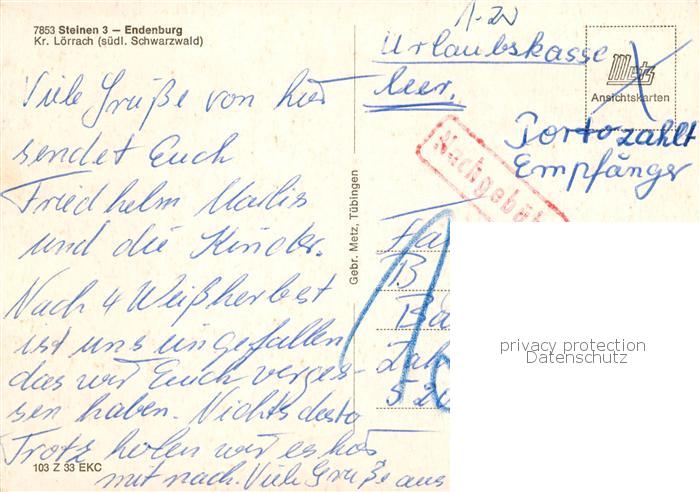 7853 Steinen 3 – Endenburg
Kr. Lörrach (südl. Schwarzwald)
Viele Grüße von hier
sendet Euch
Friedhelm Mailis
und die Kinder.
Nach 4 Weißherbst
ist uns eingefallen
das wir Euch verges-
sen haben. Nichts desto
Trotz holen wir es
mit nach. Viele Grüße aus
103 Z 33 EKC
Gebr. Metz, Tübingen
Urlaubskasse
leer.
Metz
Ansichtskarten
Porto zahlt
Empfänger
Nachgebüh
Fa
B
Ba
5 20
privacy protection
Datenschutz